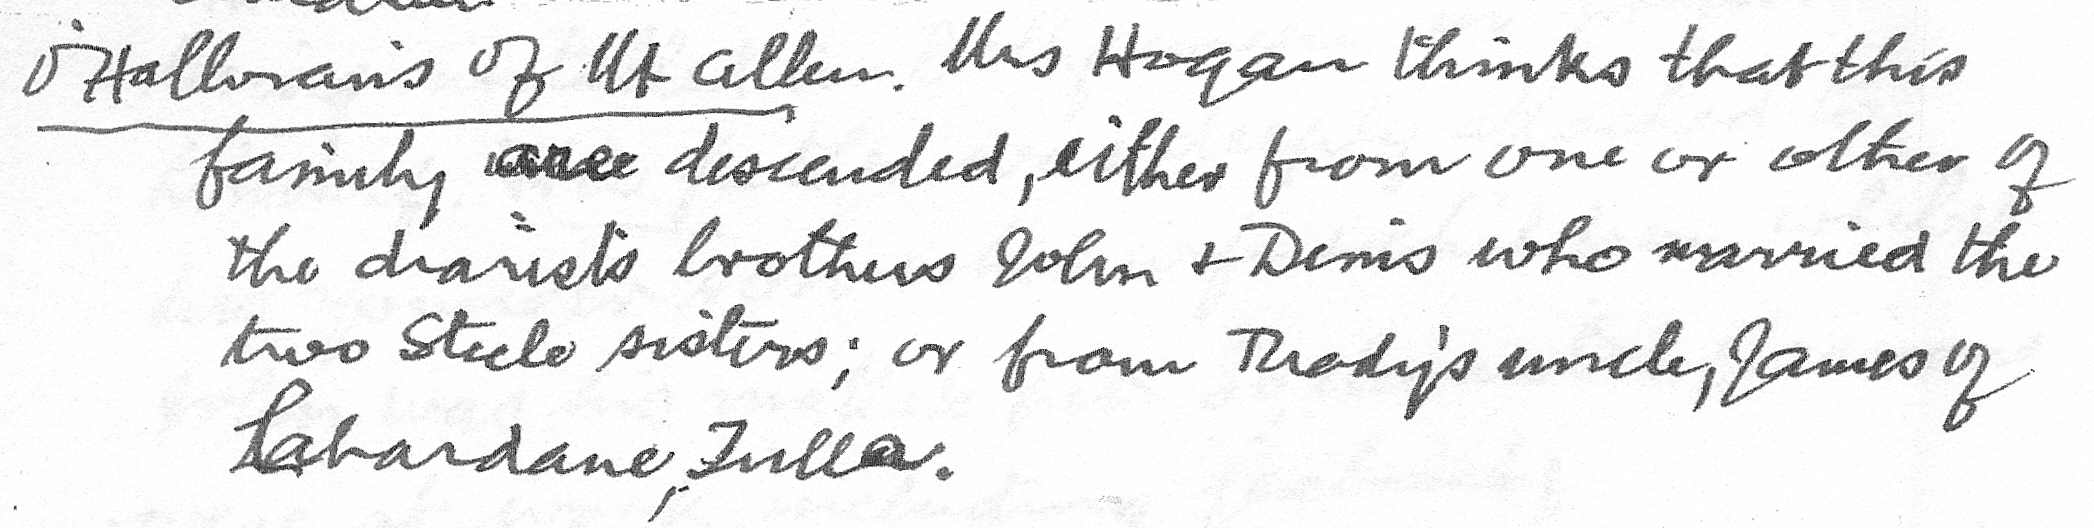 O'Halloran's of Mt Allen. Mrs Hogan thinks that this
family are descended, either from one or other of
the diarist's brothers John + Denis who married the
two Steele sisters; or from Thady's uncle, James of
Labardane, Tulla.